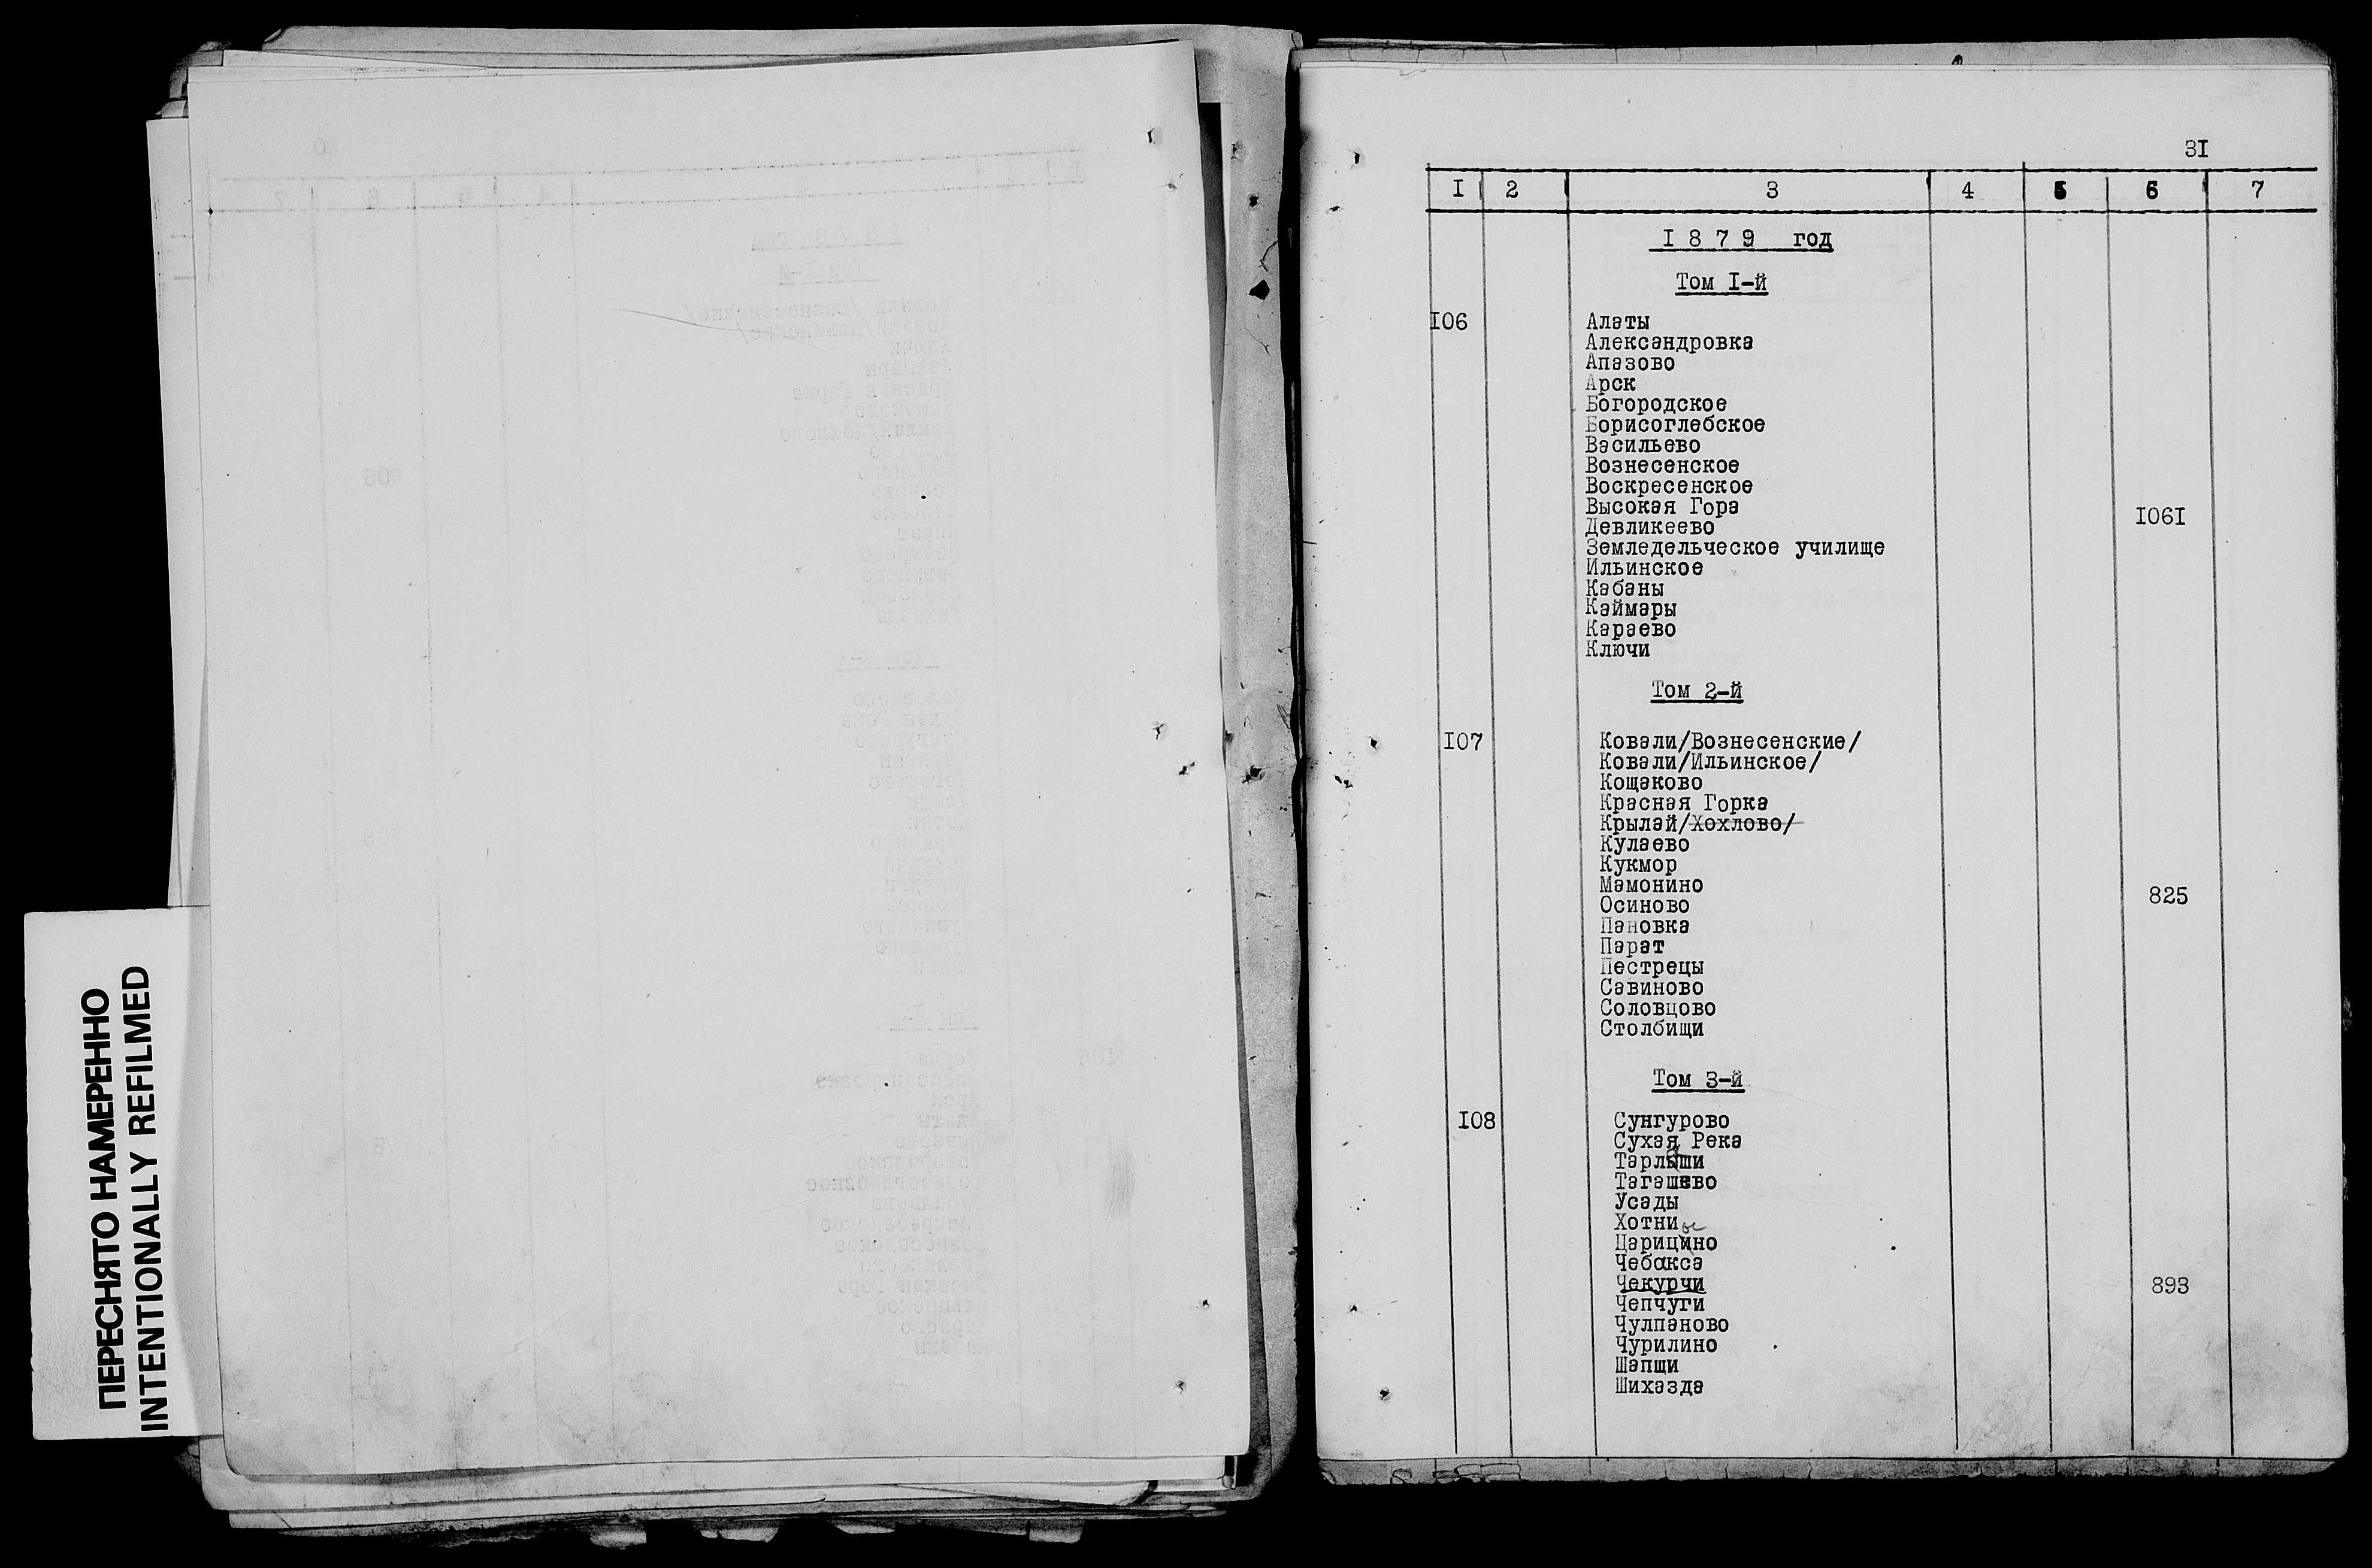 ПЕРЕСНЯТО НАМЕРЕННО
INTENTIONALLY REFILMED
3I
I 2 3 4 5 6 7
I 8 7 9 год
Том I-й
I06 Алаты
Александровка
Апазово
Арск
Богородское
Борисоглебское
Васильево
Вознесенское
Воскресенское
Высокая Гора
I06I
Девликеево
Земледельческое училище
Ильинское
Кабаны
Каймары
Караево
Ключи
Том 2-й
I07 Ковали/Вознесенские/
Ковали/Ильинское/
Кощаково
Красная Горка
Крылай/Хохлово/
Кулаево
Кукмор
Мамонино
825
Осиново
Пановка
Парат
Пестрецы
Савиново
Соловцово
Столбищи
Том 3-й
I08 Сунгурово
Сухая Река
Тарлаши
Тагашево
Усады
Хотни
Царицыно
Чебакса
Чекурчи 893
Чепчуги
Чулпаново
Чурилино
Шапши
Шихазда